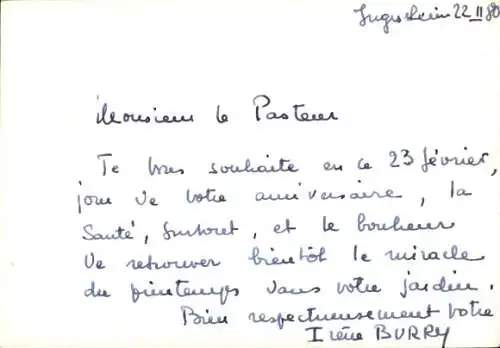 Ingersheim 22 II 80
Monsieur le Pasteur
Je vous souhaite en ce 23 février,
jour de votre anniversaire, la
Santé, surtout, et le bonheur
de retrouver bientôt le miracle
du printemps dans votre jardin.
Bien respectueusement votre
Irène BURRY